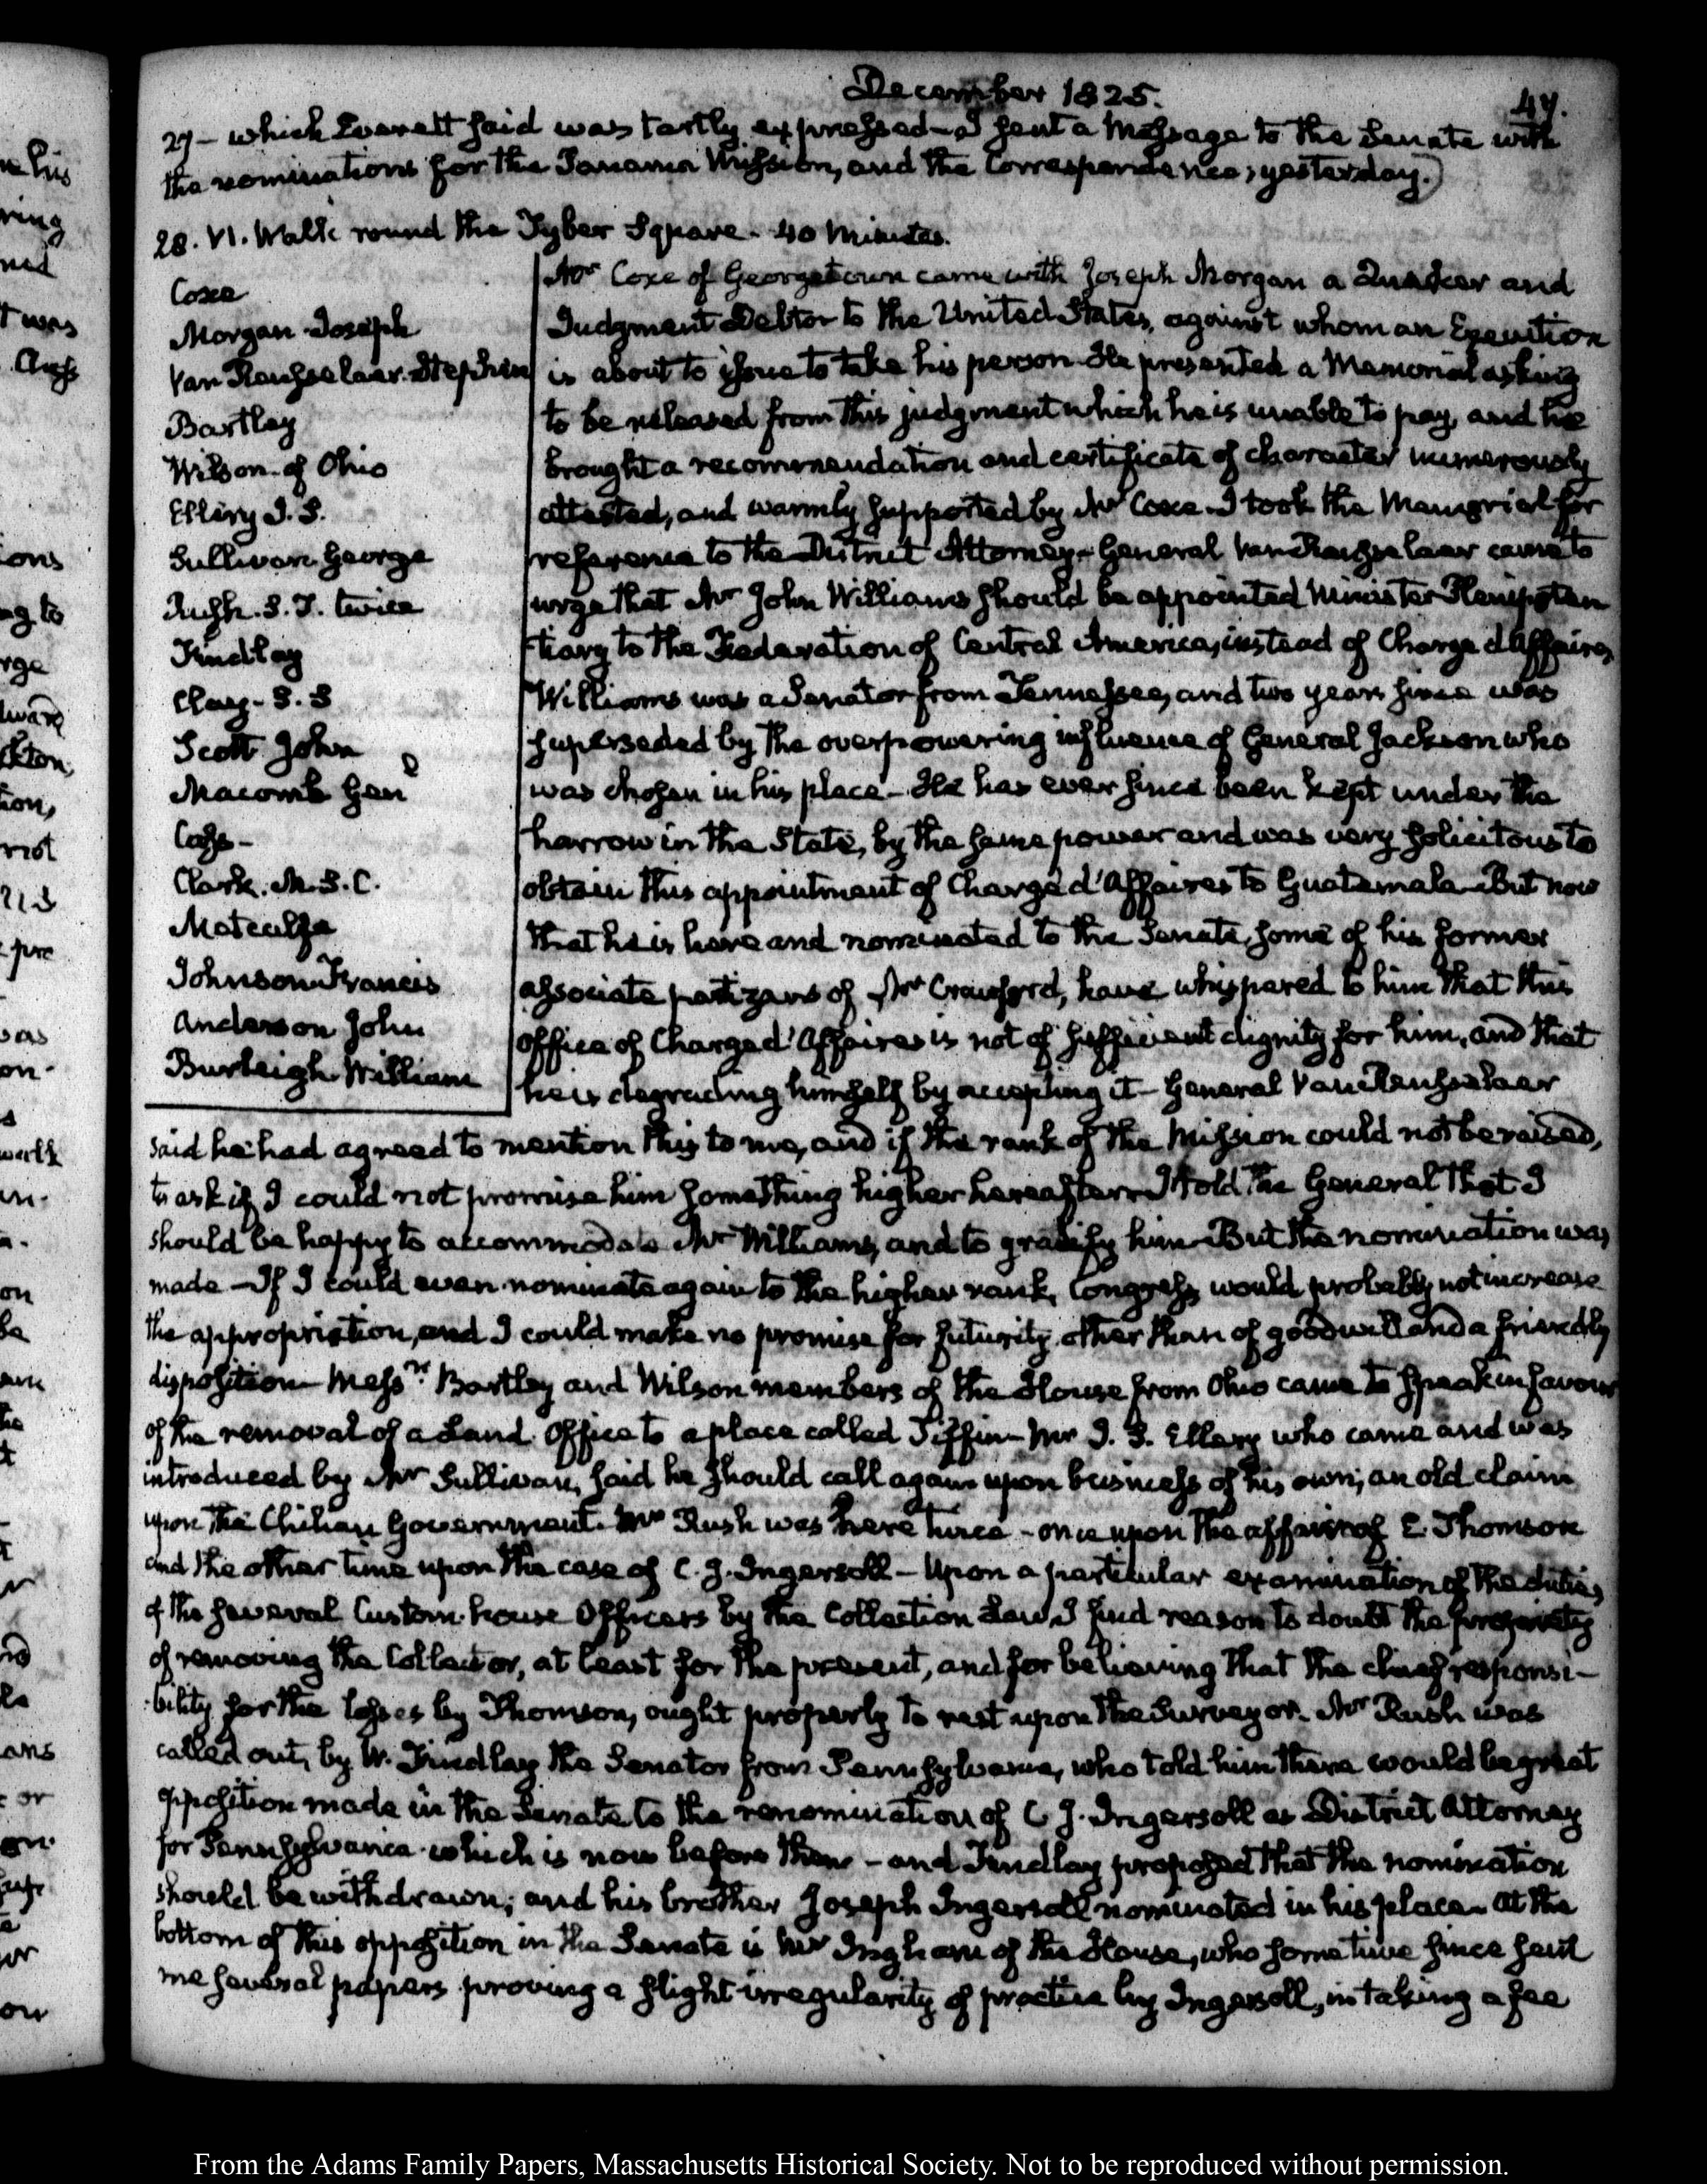 December 1825.
47.
27 – which Everett said was tartly expressed – I sent a Message to the Senate with
the nominations for the Panama Mission, and the Correspondence, yesterday.)
28. VI. Walk round the Tyber Square. 40 Minutes.
Coxe
Morgan Joseph
Van Rensselaer. Stephen
Bartley
Wilson of Ohio
Ellery I. S.
Sullivan George
Rush. S. T. twice
Findlay
Clay – S. S
Scott John
Macomb Genl
Cass –
Clark. M. S. C.
Metcalfe
Johnson Francis
Anderson John
Burleigh William
Mr Coxe of Georgetown came with Joseph Morgan a Quaker and
Judgment Debtor to the United States, against whom an Execution
is about to issue to take his person. He presented a Memorial asking
to be released from this judgment which he is unable to pay, and he
brought a recommendation and certificate of character numerously
attested, and warmly supported by Mr Coxe. I took the Memorial for
reference to the District Attorney – General Van Rensselaer came to
urge that Mr John Williams should be appointed Minister Plenipoten
tiary to the Federation of Central America, instead of Chargé d'Affaires,
Williams was a Senator from Tennessee, and two years since was
superseded by the overpowering influence of General Jackson who
was chosen in his place – He has ever since been kept under the
harrow in the State, by the same power and was very solicitous to
obtain this appointment of Chargé d'Affaires to Guatemala – But now
that he is here and nominated to the Senate, some of his former
associate partizans of Mr Crawford, have whispered to him that this
office of Chargé d'Affaires is not of sufficient dignity for him, and that
he is degrading himself by accepting it – General Van Rensselaer
said he had agreed to mention this to me, and if the rank of the Mission could not be raised,
to ask if I could not promise him something higher hereafter – I told the General that I
should be happy to accommodate Mr Williams, and to gratify him – But the nomination was
made – If I could even nominate again to the higher rank, Congress would probably not increase
the appropriation, and I could make no promise for futurity other than of good will and a friendly
disposition – Messrs Bartley and Wilson members of the House from Ohio came to speak in favour
of the removal of a Land Office to a place called Tiffin – Mr I. S. Ellery who came and was
introduced by Mr Sullivan, said he should call again upon business of his own; an old claim
upon the Chilian Government. Mr Rush was here twice – once upon the affair of E. Thomson
and the other time upon the case of C. J. Ingersoll – Upon a particular examination of the duties
of the several Custom-house Officers by the Collection Law, I find reason to doubt the propriety
of removing the Collector, at least for the present, and for believing that the chief responsi-
bility for the losses by Thomson, ought properly to rest upon the Surveyor. Mr Rush was
called out, by W. Findlay the Senator from Pennsylvania, who told him there would be great
opposition made in the Senate to the renomination of C J. Ingersoll as District Attorney
for Pennsylvania which is now before them – and Findlay proposed that the nomination
should be withdrawn; and his brother Joseph Ingersoll nominated in his place – At the
bottom of this opposition in the Senate is Mr Ingham of the House, who some time since sent
me several papers proving a slight irregularity of practice by Ingersoll, in taking a fee
From the Adams Family Papers, Massachusetts Historical Society. Not to be reproduced without permission.